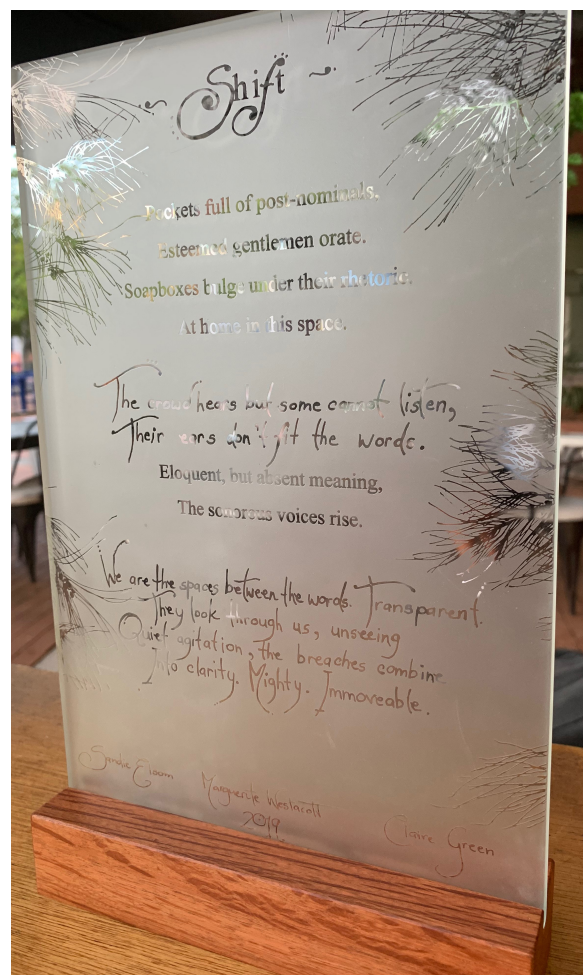 ~ Shift ~
Pockets full of post-nominals.
Esteemed gentlemen orate.
Soapboxes bulge under their rhetoric.
At home in this space.
The crowd hears but some cannot listen,
Their ears don't fit the words.
Eloquent, but absent meaning,
The sonorous voices rise.
We are the spaces between the words. Transparent.
They look through us, unseeing
Quiet agitation, the breaches combine
Into clarity. Mighty. Immoveable.
Sandie
Marguerite
2019
Claire Green